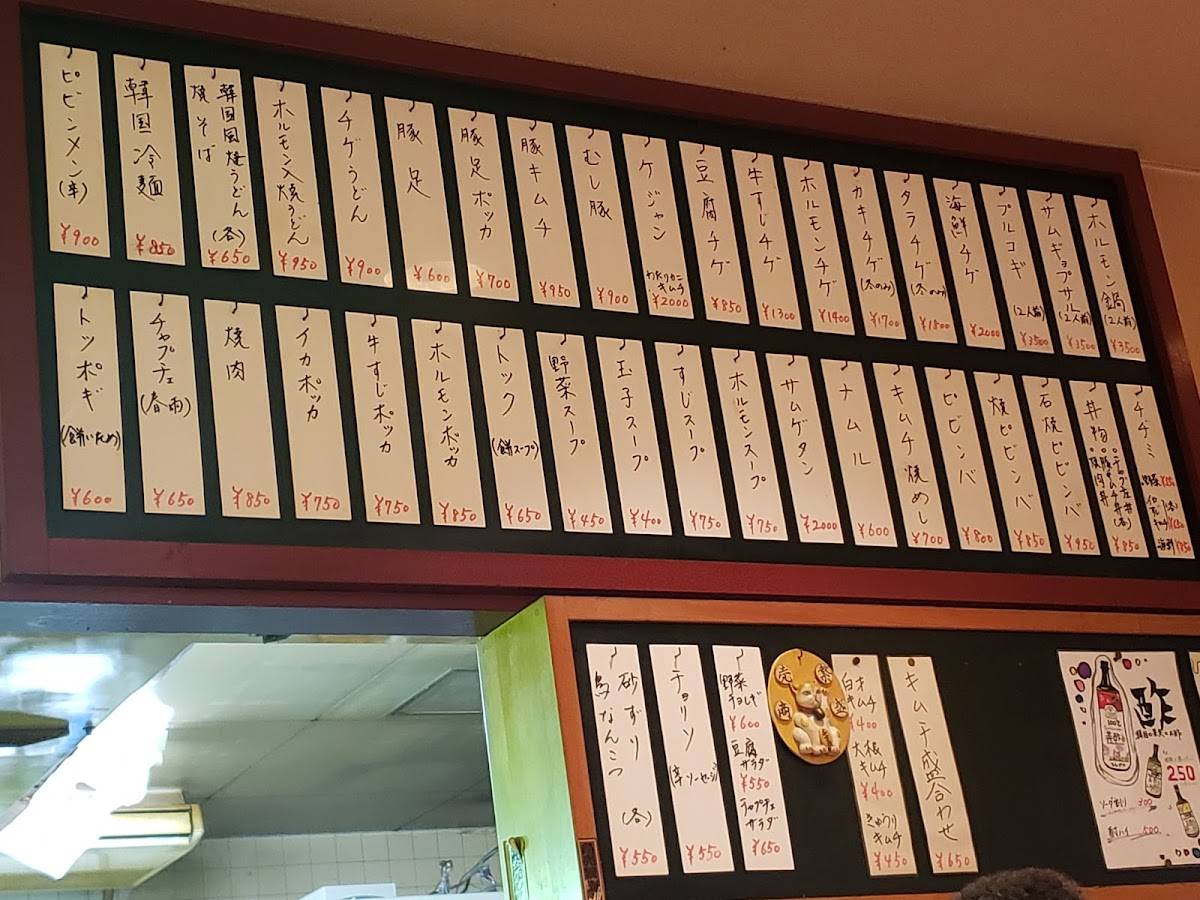 ホルモン鍋(2人前) ¥3500
サムギョプサル(2人前) ¥3500
プルコギ(2人前) ¥3500
海鮮チゲ ¥2000
タラチゲ(冬のみ) ¥1800
カキチゲ(冬のみ) ¥1700
ホルモンチゲ ¥1400
牛すじチゲ ¥1300
豆腐チゲ ¥850
ケジャン わたりガニキムチ ¥2000
むし豚 ¥900
豚キムチ ¥950
豚足ポッカ ¥700
豚足 ¥600
チゲうどん ¥900
ホルモン入焼うどん ¥950
韓国風焼うどん
焼そば (各) ¥650
韓国冷麺 ¥850
ピビンメン(辛) ¥900
チヂミ
海鮮 ¥850
丼物
豚キムチ丼(各)
焼肉丼
¥850
石焼ピビンバ ¥950
焼ピビンバ ¥850
ピビンバ ¥800
キムチ焼めし ¥700
ナムル ¥600
サムゲタン ¥2000
ホルモンスープ ¥750
すじスープ ¥750
玉子スープ ¥400
野菜スープ ¥450
トック(餅スープ) ¥650
ホルモンポッカ ¥850
牛すじポッカ ¥750
イカポッカ ¥750
焼肉 ¥850
チャプチェ(春雨) ¥650
トッポギ(餅いため) ¥600
キムチ盛合わせ ¥650
白才キムチ ¥400
大根キムチ ¥400
きゅうりキムチ ¥450
野菜チョレギ ¥600
豆腐サラダ ¥550
チャプチェサラダ ¥650
チョリソ(辛ソーセージ) ¥550
砂ずり
鳥なんこつ (各) ¥550
商売繁盛
酢
250
ソーダ割り 300
酎ハイ 500